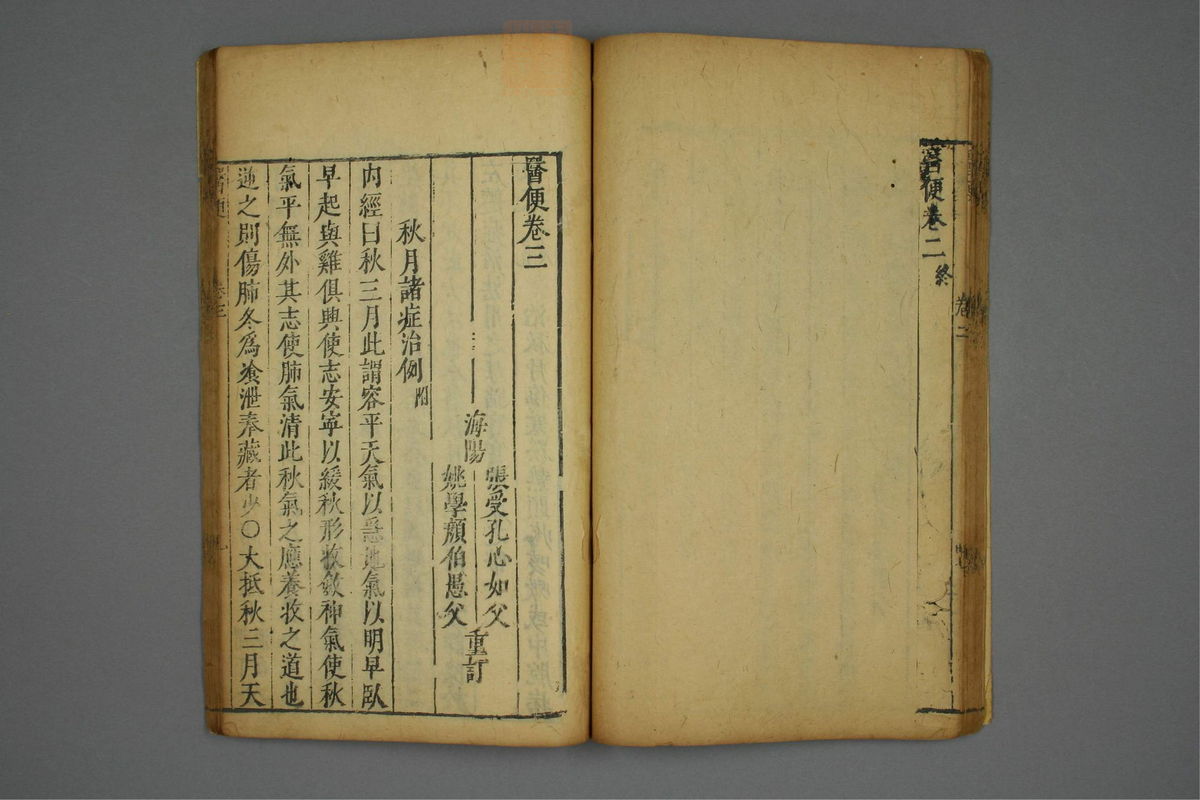 醫便卷二終
卷二
醫便卷三
海陽
張受孔心如父
姚學顏伯愚父
重訂
秋月諸症治例附
內經曰秋三月此謂容平天氣以急地氣以明早臥
早起與雞俱興使志安寧以緩秋形收斂神氣使秋
氣平無外其志使肺氣清此秋氣之應養收之道也
逆之則傷肺冬爲飧泄奉藏者少○大抵秋三月天
醫便
卷三